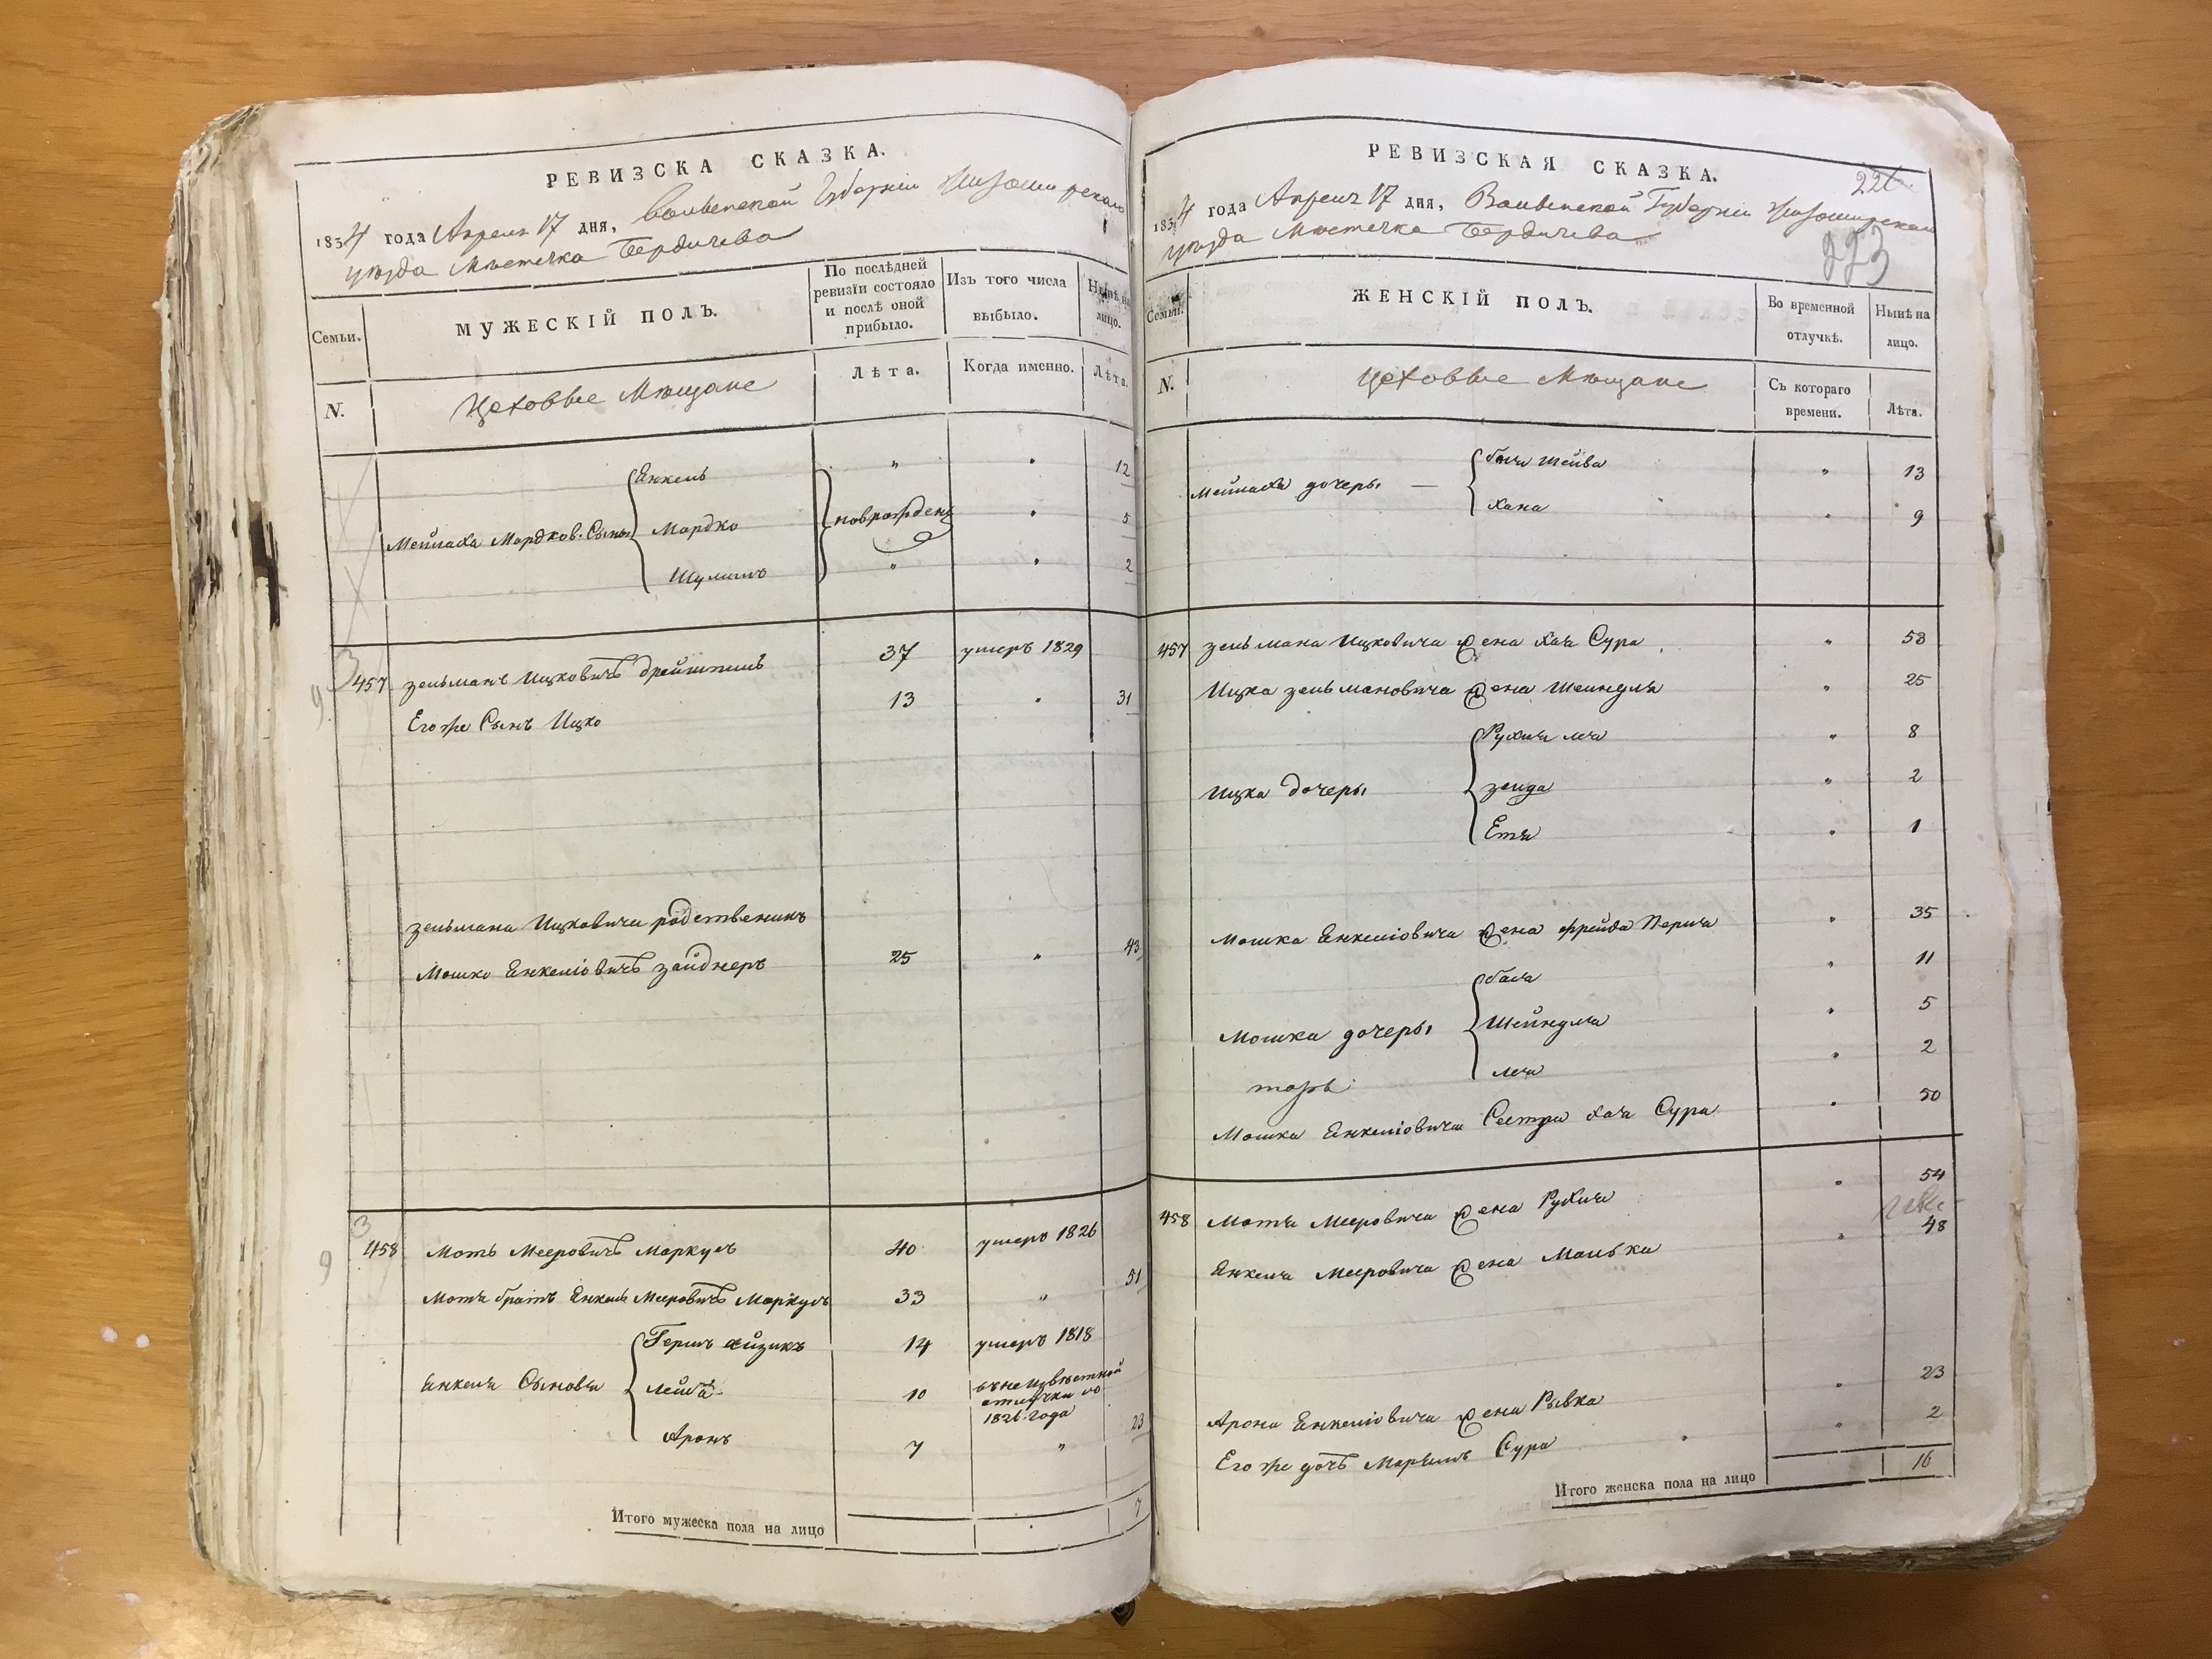 РЕВИЗСКА СКАЗКА.
1834 года Апреля 17 дня, Волынской Губерніи Житомирскаго
уѣзда Мѣстечка Бердичева
Семьи.
МУЖЕСКІЙ ПОЛЪ.
По послѣдней ревизіи состояло и послѣ оной прибыло.
Изъ того числа выбыло.
Нынѣ на лицо.
N.
Цеховые Мѣщане
Лѣта.
Когда именно.
Лѣта.
Енкель " " 12
Мейлаха Мордков. Сыны Мордко новорожден " 5
Шулимъ " " 2
457 Зельманъ Ицковичъ 37 умеръ 1829
Его же Сынъ Ицко 13 " 31
Зельмана Ицковича родственикъ
Мошко Енкеліовичъ Зайднеръ 25 " 43
458 Моть Мееровичъ Маркусъ 40 умеръ 1826
Мотя братъ Енкель Мееровичъ Маркусъ 33 " 51
Гершъ Айзикъ 14 умеръ 1818
Енкеля Сыновья Лейба 10 въ неизвѣстной отлучки со 1826 года
Аронъ 7 " 23
Итого мужеска пола на лицо 7
РЕВИЗСКАЯ СКАЗКА.
223
1834 года Апреля 17 дня, Волынской Губерніи Житомирскаго
уѣзда Мѣстечка Бердичева
Семьи.
ЖЕНСКІЙ ПОЛЪ.
Во временной отлучкѣ.
Нынѣ на лицо.
N.
Цеховые Мѣщане
Съ котораго времени.
Лѣта.
Мейлаха дочеры — Бася Шейва " 13
Хана " 9
457 Зельмана Ицковича жена Хая Сура " 58
Ицка Зельмановича жена Шейндля " 25
Рухля Лея " 8
Ицка дочеры " 2
Етя " 1
Мошка Енкеліовича жена Фрейда Перля " 35
Бася " 11
Мошка дочеры Шейндля " 5
Лея " 2
Мошка Енкеліовича Сестра Хая Сура " 50
458 Мотя Мееровича жена Рухля " 54
Енкеля Мееровича жена Малька " 48
Арона Енкеліовича жена Рывка " 23
Его же дочь Марьямъ Сура " 2
Итого женска пола на лицо 16